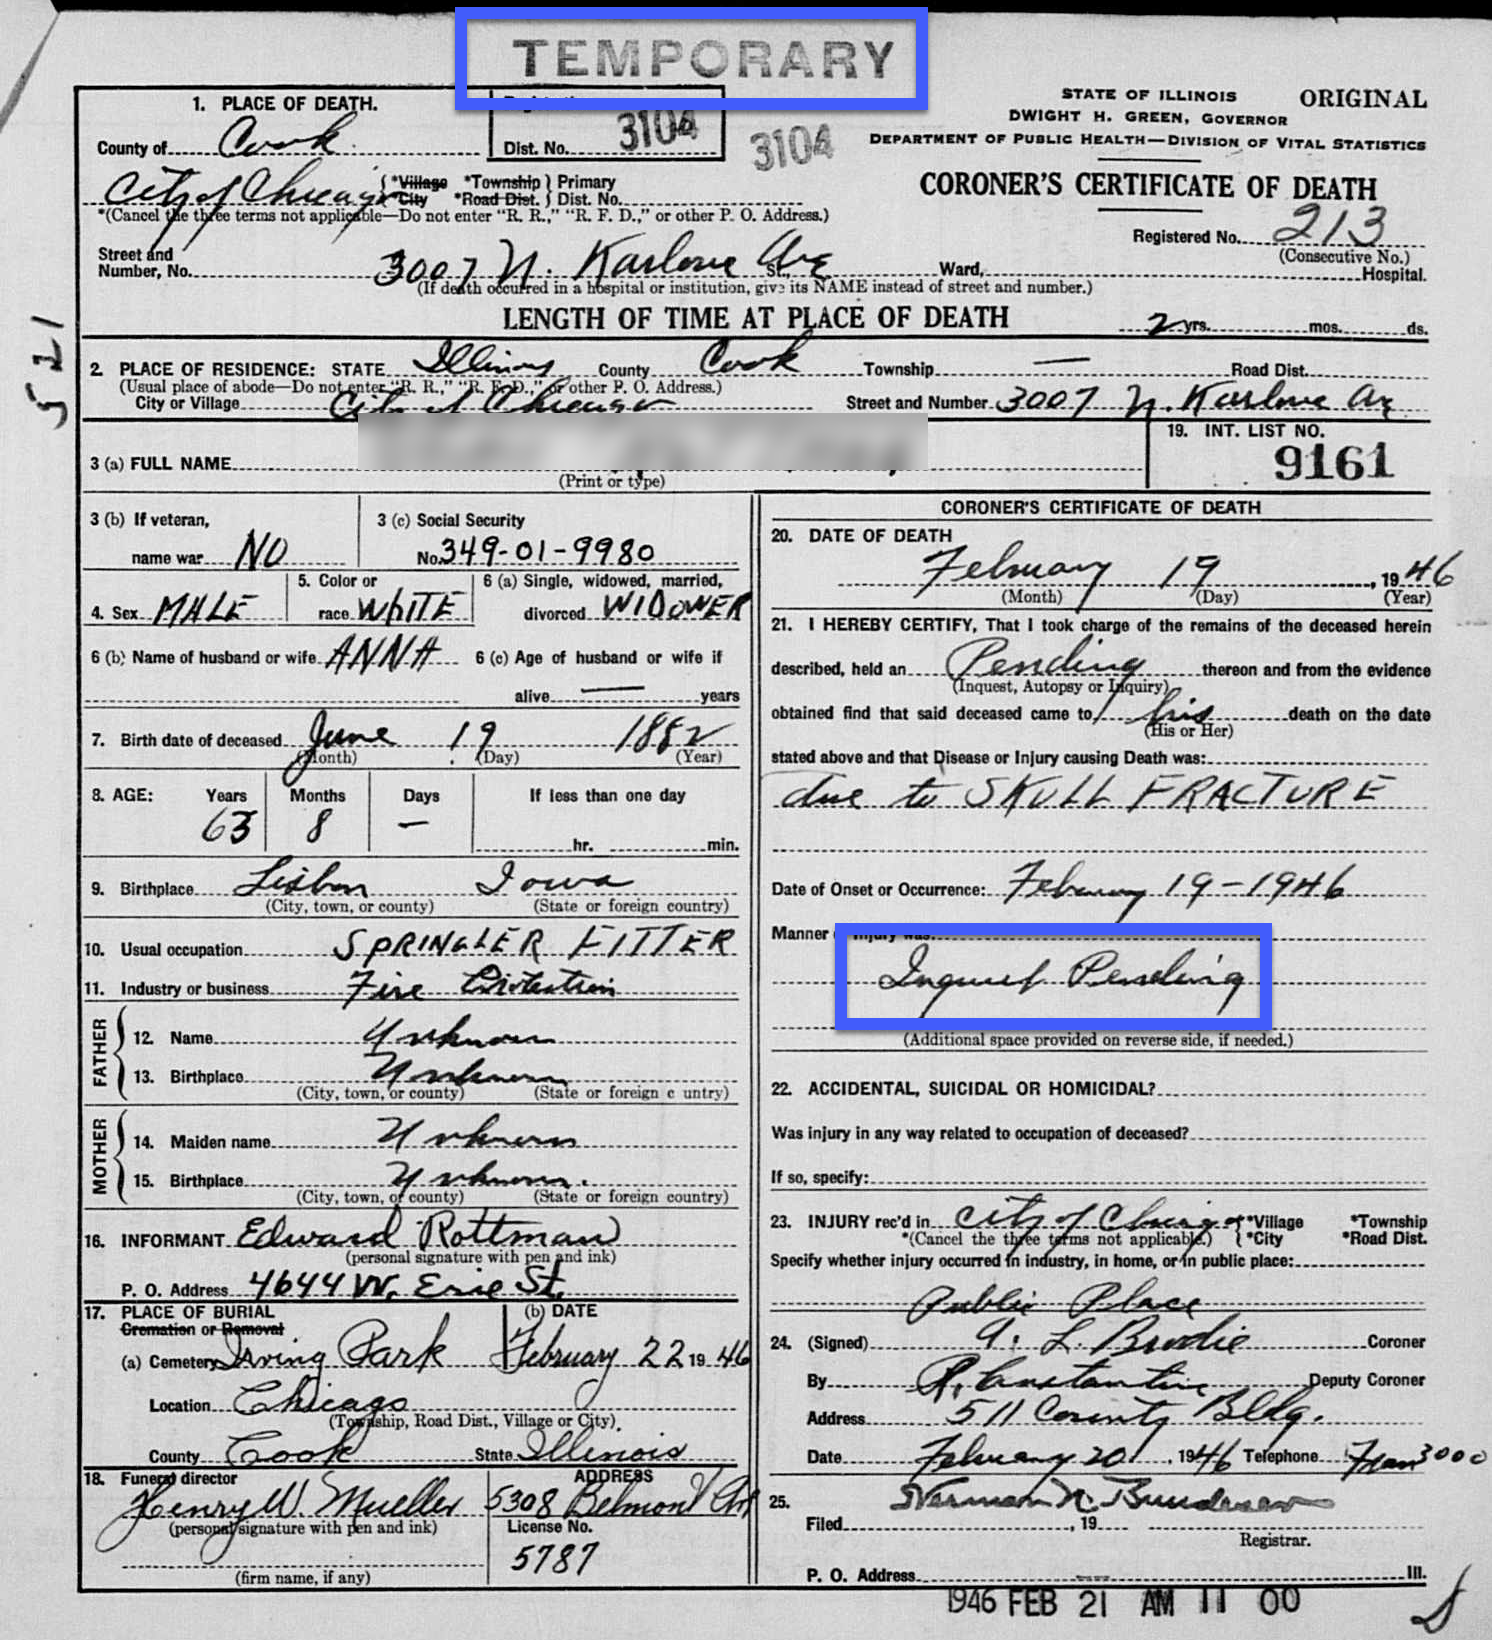 TEMPORARY
1. PLACE OF DEATH.
County of Cook
Dist. No. 3104
3104
STATE OF ILLINOIS
DWIGHT H. GREEN, GOVERNOR
DEPARTMENT OF PUBLIC HEALTH—DIVISION OF VITAL STATISTICS
ORIGINAL
CORONER'S CERTIFICATE OF DEATH
City of Chicago { *Village *Township } Primary
*City *Road Dist. } Dist. No.
*(Cancel the three terms not applicable—Do not enter "R. R.," "R. F. D.," or other P. O. Address.)
Registered No. 213
(Consecutive No.)
Street and
Number, No. 3007 N. Karlove Ave St., Ward, Hospital.
(If death occurred in a hospital or institution, give its NAME instead of street and number.)
LENGTH OF TIME AT PLACE OF DEATH 2 yrs. mos. ds.
521
2. PLACE OF RESIDENCE: STATE Illinois County Cook Township — Road Dist.
(Usual place of abode—Do not enter "R. R.," "R. F. D.," or other P. O. Address.)
City or Village City of Chicago Street and Number 3007 N. Karlove Av
3 (a) FULL NAME
(Print or type)
19. INT. LIST NO.
9161
3 (b) If veteran,
name war NO
3 (c) Social Security
No. 349-01-9980
4. Sex MALE
5. Color or
race WHITE
6 (a) Single, widowed, married,
divorced WIDOWER
6 (b) Name of husband or wife ANNA
6 (c) Age of husband or wife if
alive — years
7. Birth date of deceased June 19 1882
(Month) (Day) (Year)
8. AGE: Years Months Days If less than one day
63 8 — hr. min.
9. Birthplace Lisbon Iowa
(City, town, or county) (State or foreign country)
10. Usual occupation SPRINGLER FITTER
11. Industry or business Fire Protection
FATHER
12. Name Unknown
13. Birthplace Unknown
(City, town, or county) (State or foreign c untry)
MOTHER
14. Maiden name Unknown
15. Birthplace Unknown.
(City, town, of county) (State or foreign country)
16. INFORMANT Edward Rottman
(personal signature with pen and ink)
P. O. Address 4644 W. Erie St.
17. PLACE OF BURIAL
Cremation or Removal
(b) DATE
(a) Cemetery Irving Park February 22 1946
Location Chicago
(Township, Road Dist., Village or City)
County Cook State Illinois
18. Funeral director ADDRESS
Henry W. Mueller 5308 Belmont Av
(personal signature with pen and ink) License No.
5787
(firm name, if any)
CORONER'S CERTIFICATE OF DEATH
20. DATE OF DEATH
February 19, 1946
(Month) (Day) (Year)
21. I HEREBY CERTIFY, That I took charge of the remains of the deceased herein
described, held an Pending thereon and from the evidence
(Inquest, Autopsy or Inquiry)
obtained find that said deceased came to his death on the date
(His or Her)
stated above and that Disease or Injury causing Death was:
due to SKULL FRACTURE
Date of Onset or Occurrence: February 19-1946
Manner of Injury was:
Inquest Pending
(Additional space provided on reverse side, if needed.)
22. ACCIDENTAL, SUICIDAL OR HOMICIDAL?
Was injury in any way related to occupation of deceased?
If so, specify:
23. INJURY rec'd in City of Chicago *Village *Township
*(Cancel the three terms not applicable.) { *City *Road Dist.
Specify whether injury occurred in industry, in home, or in public place:
Public Place
24. (Signed) A. L. Brodie Coroner
By R. Constantine Deputy Coroner
Address 511 County Bldg.
Date February 20, 1946 Telephone Fran 3000
25. Herman N. Bundesen
Filed , 19
Registrar.
P. O. Address Ill.
1946 FEB 21 AM 11 00